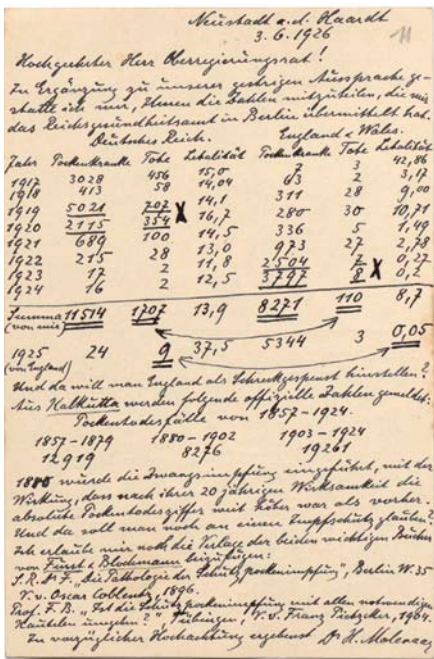 Neustadt a. d. Haardt
3. 6. 1926
11
Hochgeehrter Herr Oberregierungsrat!
In Ergänzung zu unserer gestrigen Aussprache ge-
statte ich mir, Ihnen die Zahlen mitzuteilen, die mir
das Reichsgesundheitsamt in Berlin übermittelt hat.
Deutsches Reich. England & Wales.
Jahr Pockenkranke Tote Letalität Pockenkranke Tote Letalität
1917 3028 456 15,0 7 3 42,86
1918 413 58 14,04 63 2 3,17
1919 5021 707 X 14,1 311 28 9,00
1920 2115 354 16,7 280 30 10,71
1921 689 100 14,5 336 5 1,49
1922 215 28 13,0 973 27 2,78
1923 17 2 11,8 2504 7 0,27
1924 16 2 12,5 3797 8 X 0,2
Summa 11514 1707 13,9 8271 110 8,7
(von mir)
1925 24 9 37,5 5344 3 0,05
(von England)
Und da will man England als Schreckgespenst hinstellen?
Aus Kalkutta werden folgende offizielle Zahlen gemeldet:
Pockentodesfälle von 1857-1924.
1857-1879 1880-1902 1903-1924
12919 8276 19261
1880 wurde die Zwangsimpfung eingeführt, mit der
Wirkung, dass nach ihrer 20 jährigen Wirksamkeit die
absolute Pockentodesziffer weit höher war als vorher.
Und da soll man noch an einen Impfschutz glauben?
Ich erlaube mir noch die Verlage der beiden wichtigen Bücher
von Fürst & Blochmann beizufügen:
"Die Pathologie der Schutzpockenimpfung", Berlin W. 35
V. v. Oscar Coblentz, 1896.
Prof. F. B. "Ist die Schutzpockenimpfung mit allen notwendigen
Kautelen umgeben?", Tübingen, V. v. Franz Pietzcker, 1904.
In vorzüglicher Hochachtung ergebenst Dr H. Molenaar